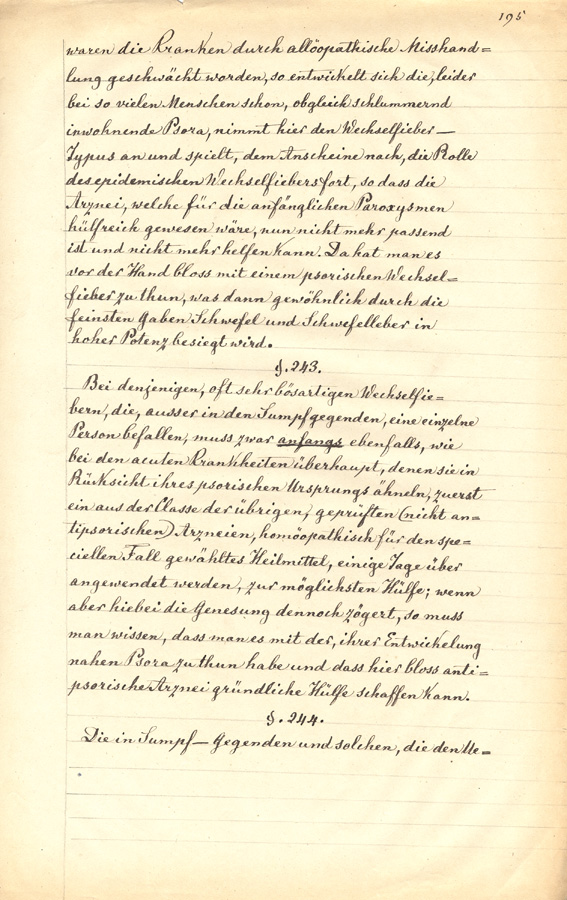 195
waren die Kranken durch allöopathische Misshand=
lung geschwächt worden, so entwickelt sich die, leider
bei so vielen Menschen schon, obgleich schlummernd
inwohnende Psora, nimmt hier den Wechselfieber—
Typus an und spielt, dem Anscheine nach, die Rolle
des epidemischen Wechselfiebers fort, so dass die
Arznei, welche für die anfänglichen Paroxysmen
hülfreich gewesen wäre, nun nicht mehr passend
ist und nicht mehr helfen kann. Da hat man es
vor der Hand bloss mit einem psorischen Wechsel=
fieber zu thun, was dann gewöhnlich durch die
feinsten Gaben Schwefel und Schwefelleber in
hoher Potenz besiegt wird.
§. 243.
Bei denjenigen, oft sehr bösartigen Wechselfie=
bern, die, ausser in den Sumpfgegenden, eine einzelne
Person befallen, muss zwar anfangs ebenfalls, wie
bei den acuten Krankheiten überhaupt, denen sie in
Rücksicht ihres psorischen Ursprungs ähneln, zuerst
ein aus der Classe der übrigen, geprüften (nicht an=
tipsorischen) Arzneien, homöopathisch für den spe=
ciellen Fall gewähltes Heilmittel, einige Tage über
angewendet werden, zur möglichsten Hülfe; wenn
aber hiebei die Genesung dennoch zögert, so muss
man wissen, dass man es mit der, ihrer Entwickelung
nahen Psora zu thun habe und dass hier bloss anti=
psorische Arznei gründliche Hülfe schaffen kann.
§. 244.
Die in Sumpf— Gegenden und solchen, die den Ue=